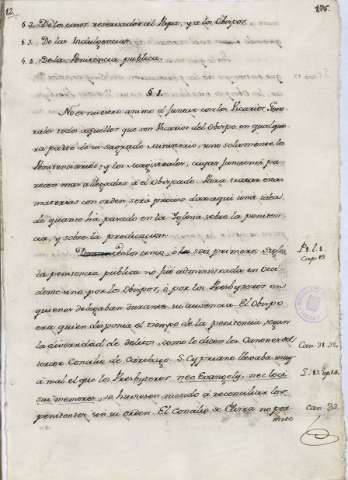 12.
§ 2. De los casos reservados al Papa, y a los Obispos.
§ 3. De las Indulgencias.
§ 4. De la Penitencia publica.
§ 1.
No es nuestro animo el juntar con los Vicarios Gene-
rales todo aquello que son Vicarios del Obispo en qualquie-
ra parte de su sagrado Ministerio, sino solamente los
Penitenciarios, y los Magistrales, cuyas funciones pa-
recen mas allegadas a el Obispado. Para tratar estas
materias con orden, sera preciso dar aqui una idea
de quanto há pasado en la Yglesia sobre la peniten-
cia, y sobre la predicacion.
En los cinco, ó los seis primeros Siglos
la penitencia publica no fué administrada en Occi-
dente sino por los Obispos, ó por los Presbyteros en
quienes delegaban durante su ausencia. El Obispo
era quien disponia el tiempo de la penitencia, segun
la calidad de delitos, como lo dicen los Canones del
tercer Concilio de Cartágo. S. Cypriano llevaba muy
a mal el que los Presbyteros nec Evangelij, nec loci
sui memores, se huviesen metido á reconciliar los
penitentes sin su orden. El Concilio de Elvira no per-
mite
P. 1. L. 2.
Cap. 13.
Can. 31. 32.
Can. 32.